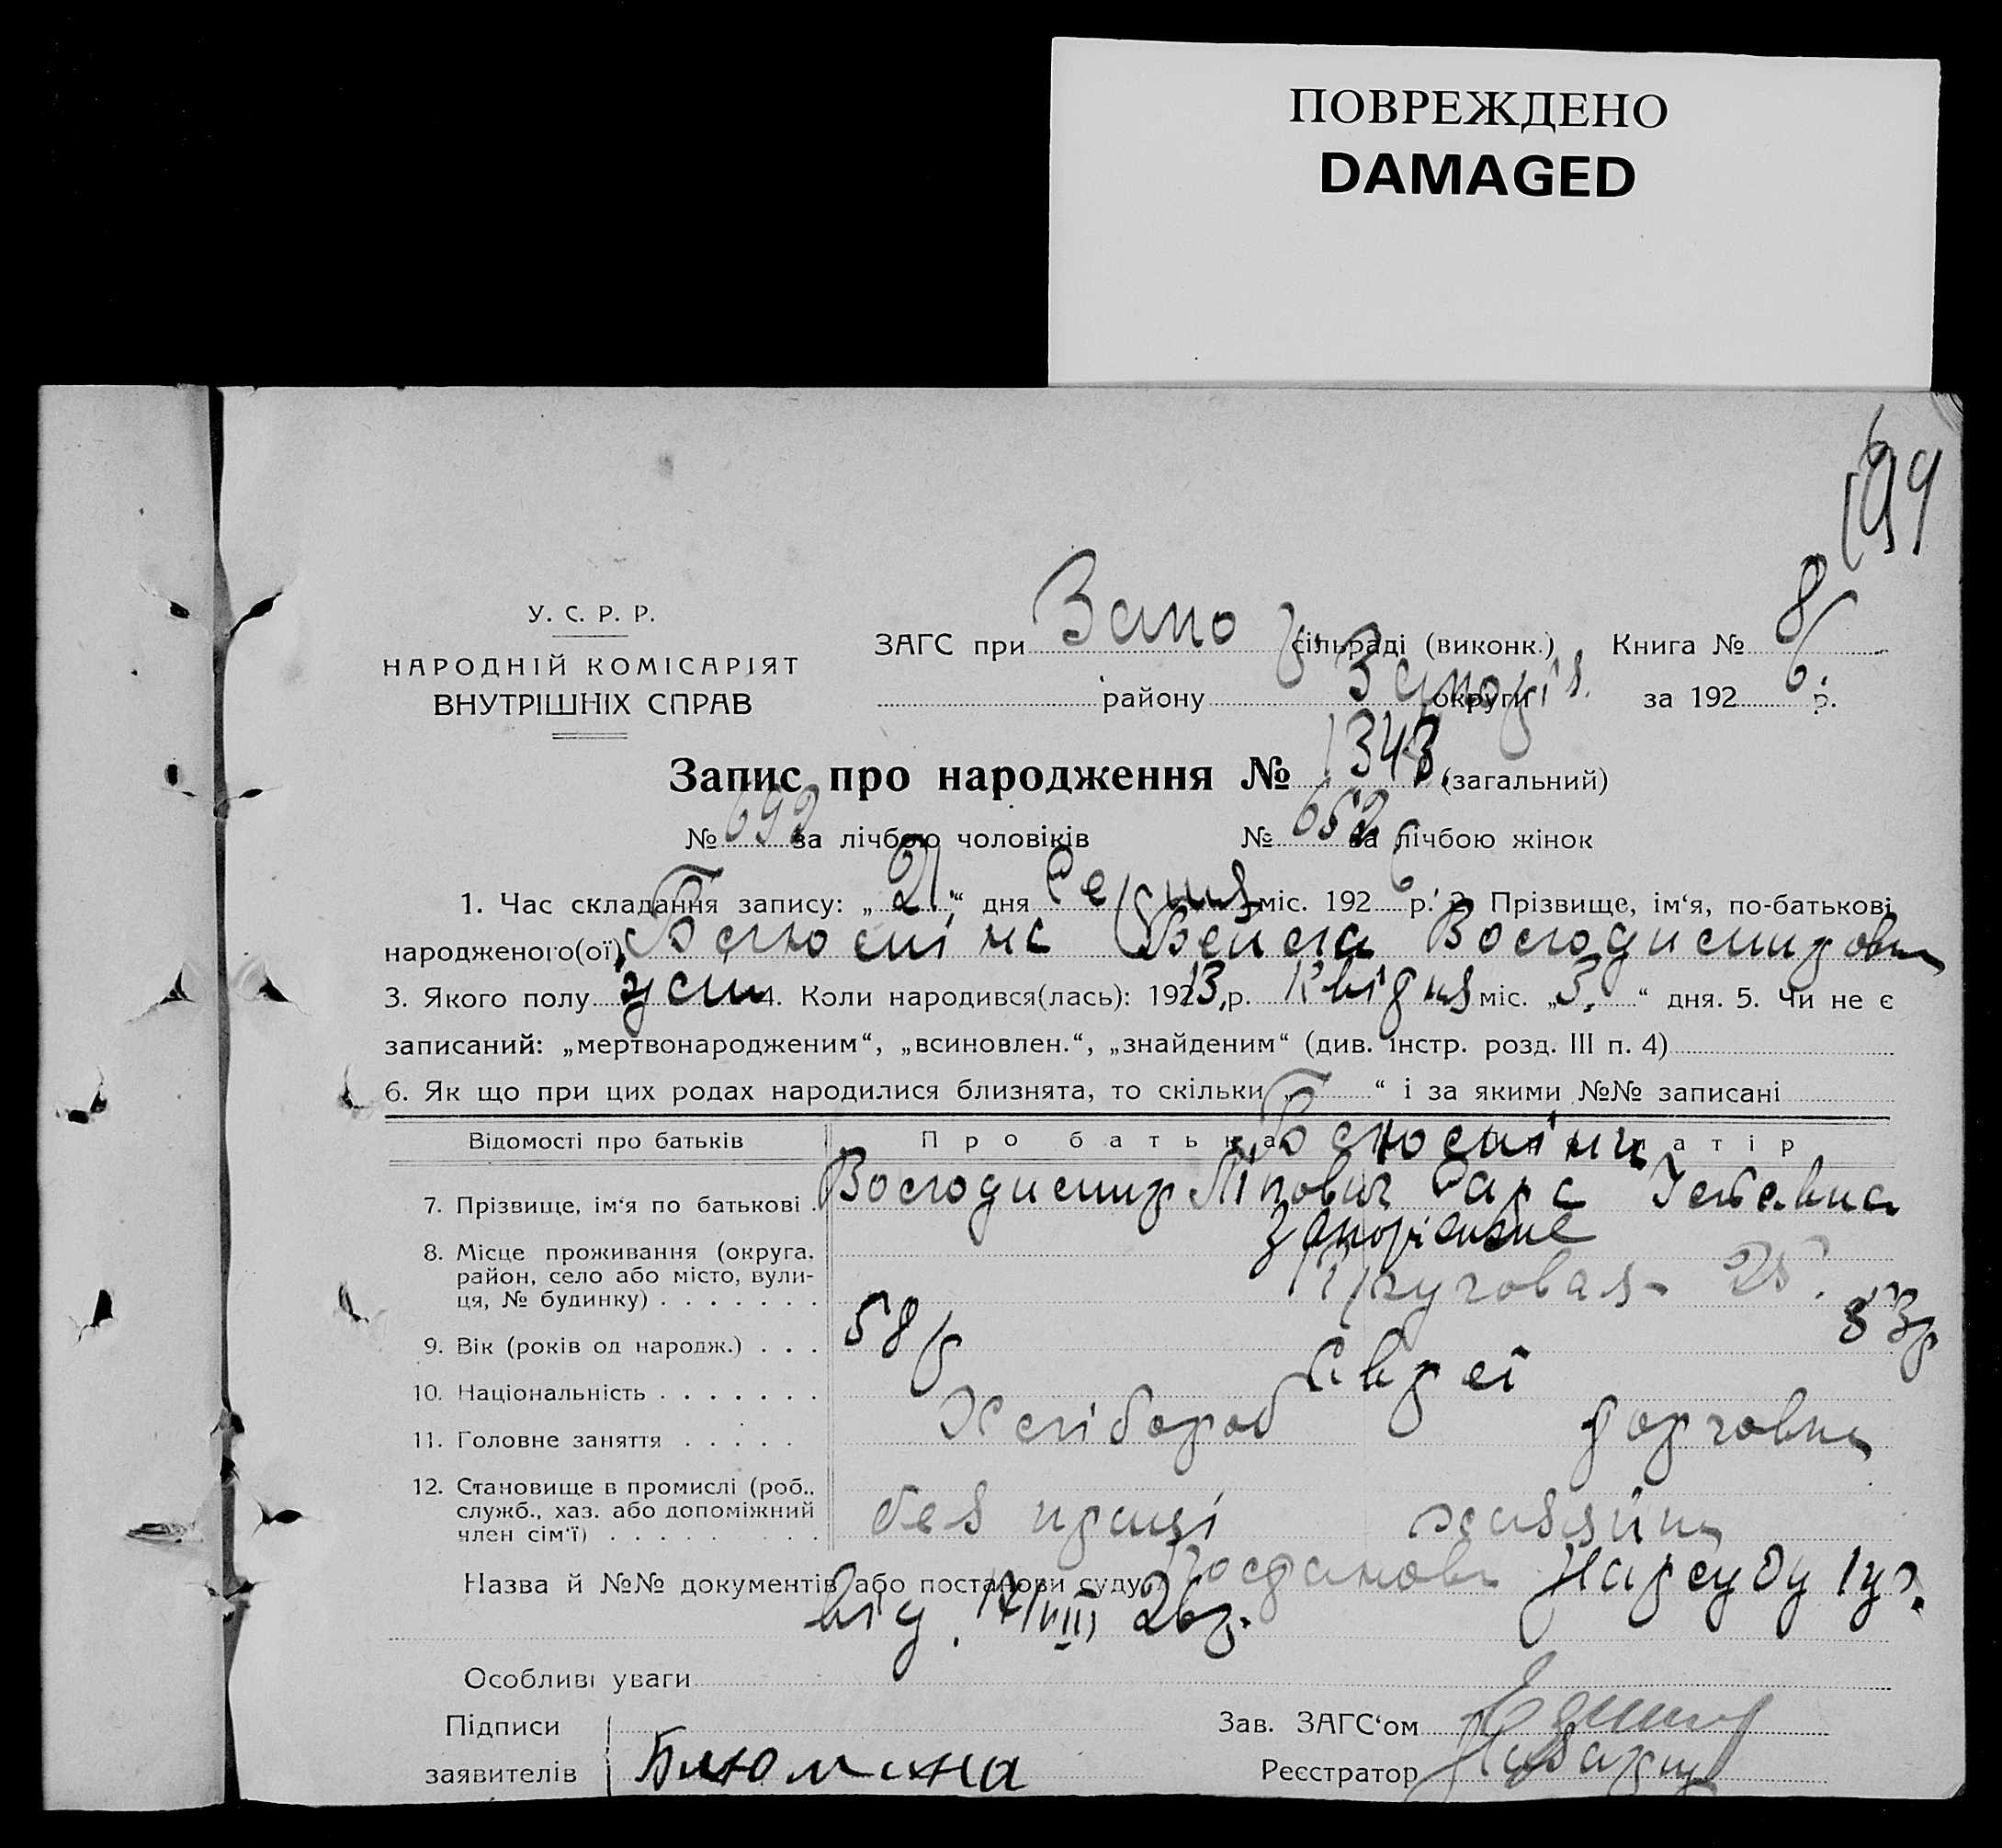 ПОВРЕЖДЕНО
DAMAGED
199
У. С. Р. Р.
НАРОДНІЙ КОМІСАРІЯТ
ВНУТРІШНІХ СПРАВ
ЗАГС при Запо сільраді (виконк.) Книга № 8
району Запоріз. округи за 1926 р.
Запис про народження № 1343 (загальний)
№ 692 за лічбою чоловіків № 652 за лічбою жінок
1. Час складання запису: „21“ дня Серпня міс. 1926 р. 2. Прізвище, ім‘я, по-батькові
народженого(ої) Блюміна Бейла Володимировн
3. Якого полу жін 4. Коли народився(лась): 1913 р. Квітня міс. „3.“ дня. 5. Чи не є
записаний: „мертвонародженим“, „всиновлен.“, „знайденим“ (див. інстр. розд. III п. 4)
6. Як що при цих родах народилися близнята, то скільки „ “ і за якими №№ записані
Відомості про батьків Про батька Про матір
Блюміни
7. Прізвище, ім‘я по батькові Володимир Сара
8. Місце проживання (округа, район, село або місто, вулиця, № будинку)
Запоріжже
25.
9. Вік (років од народж.) 58 р 53 р
10. Національність Євреї
11. Головне заняття Хлібороб торговк
12. Становище в промислі (роб., служб., хаз. або допоміжний член сім‘ї) без праці хазяйка
Назва й №№ документів або постанови суду Постанова Нарсуду 1 уч.
від 17/VIII 26 р.
Особливі уваги
Підписи
заявителів Блюмина
Зав. ЗАГС‘ом
Реєстратор